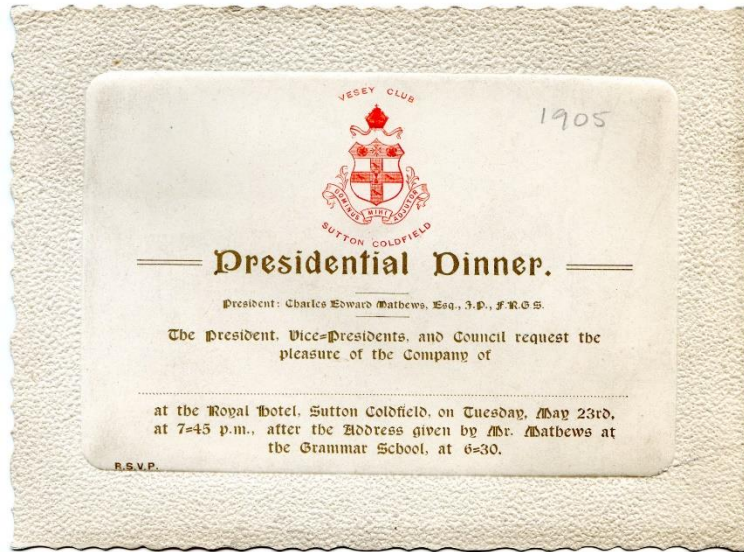 VESEY CLUB
1905
DOMINUS MIHI ADJUTOR
SUTTON COLDFIELD
Presidential Dinner.
President: Charles Edward Mathews, Esq., J.P., F.R.G.S.
The President, Vice=Presidents, and Council request the
pleasure of the Company of
at the Royal Hotel, Sutton Coldfield, on Tuesday, May 23rd,
at 7=45 p.m., after the Address given by Mr. Mathews at
the Grammar School, at 6=30.
R.S.V.P.